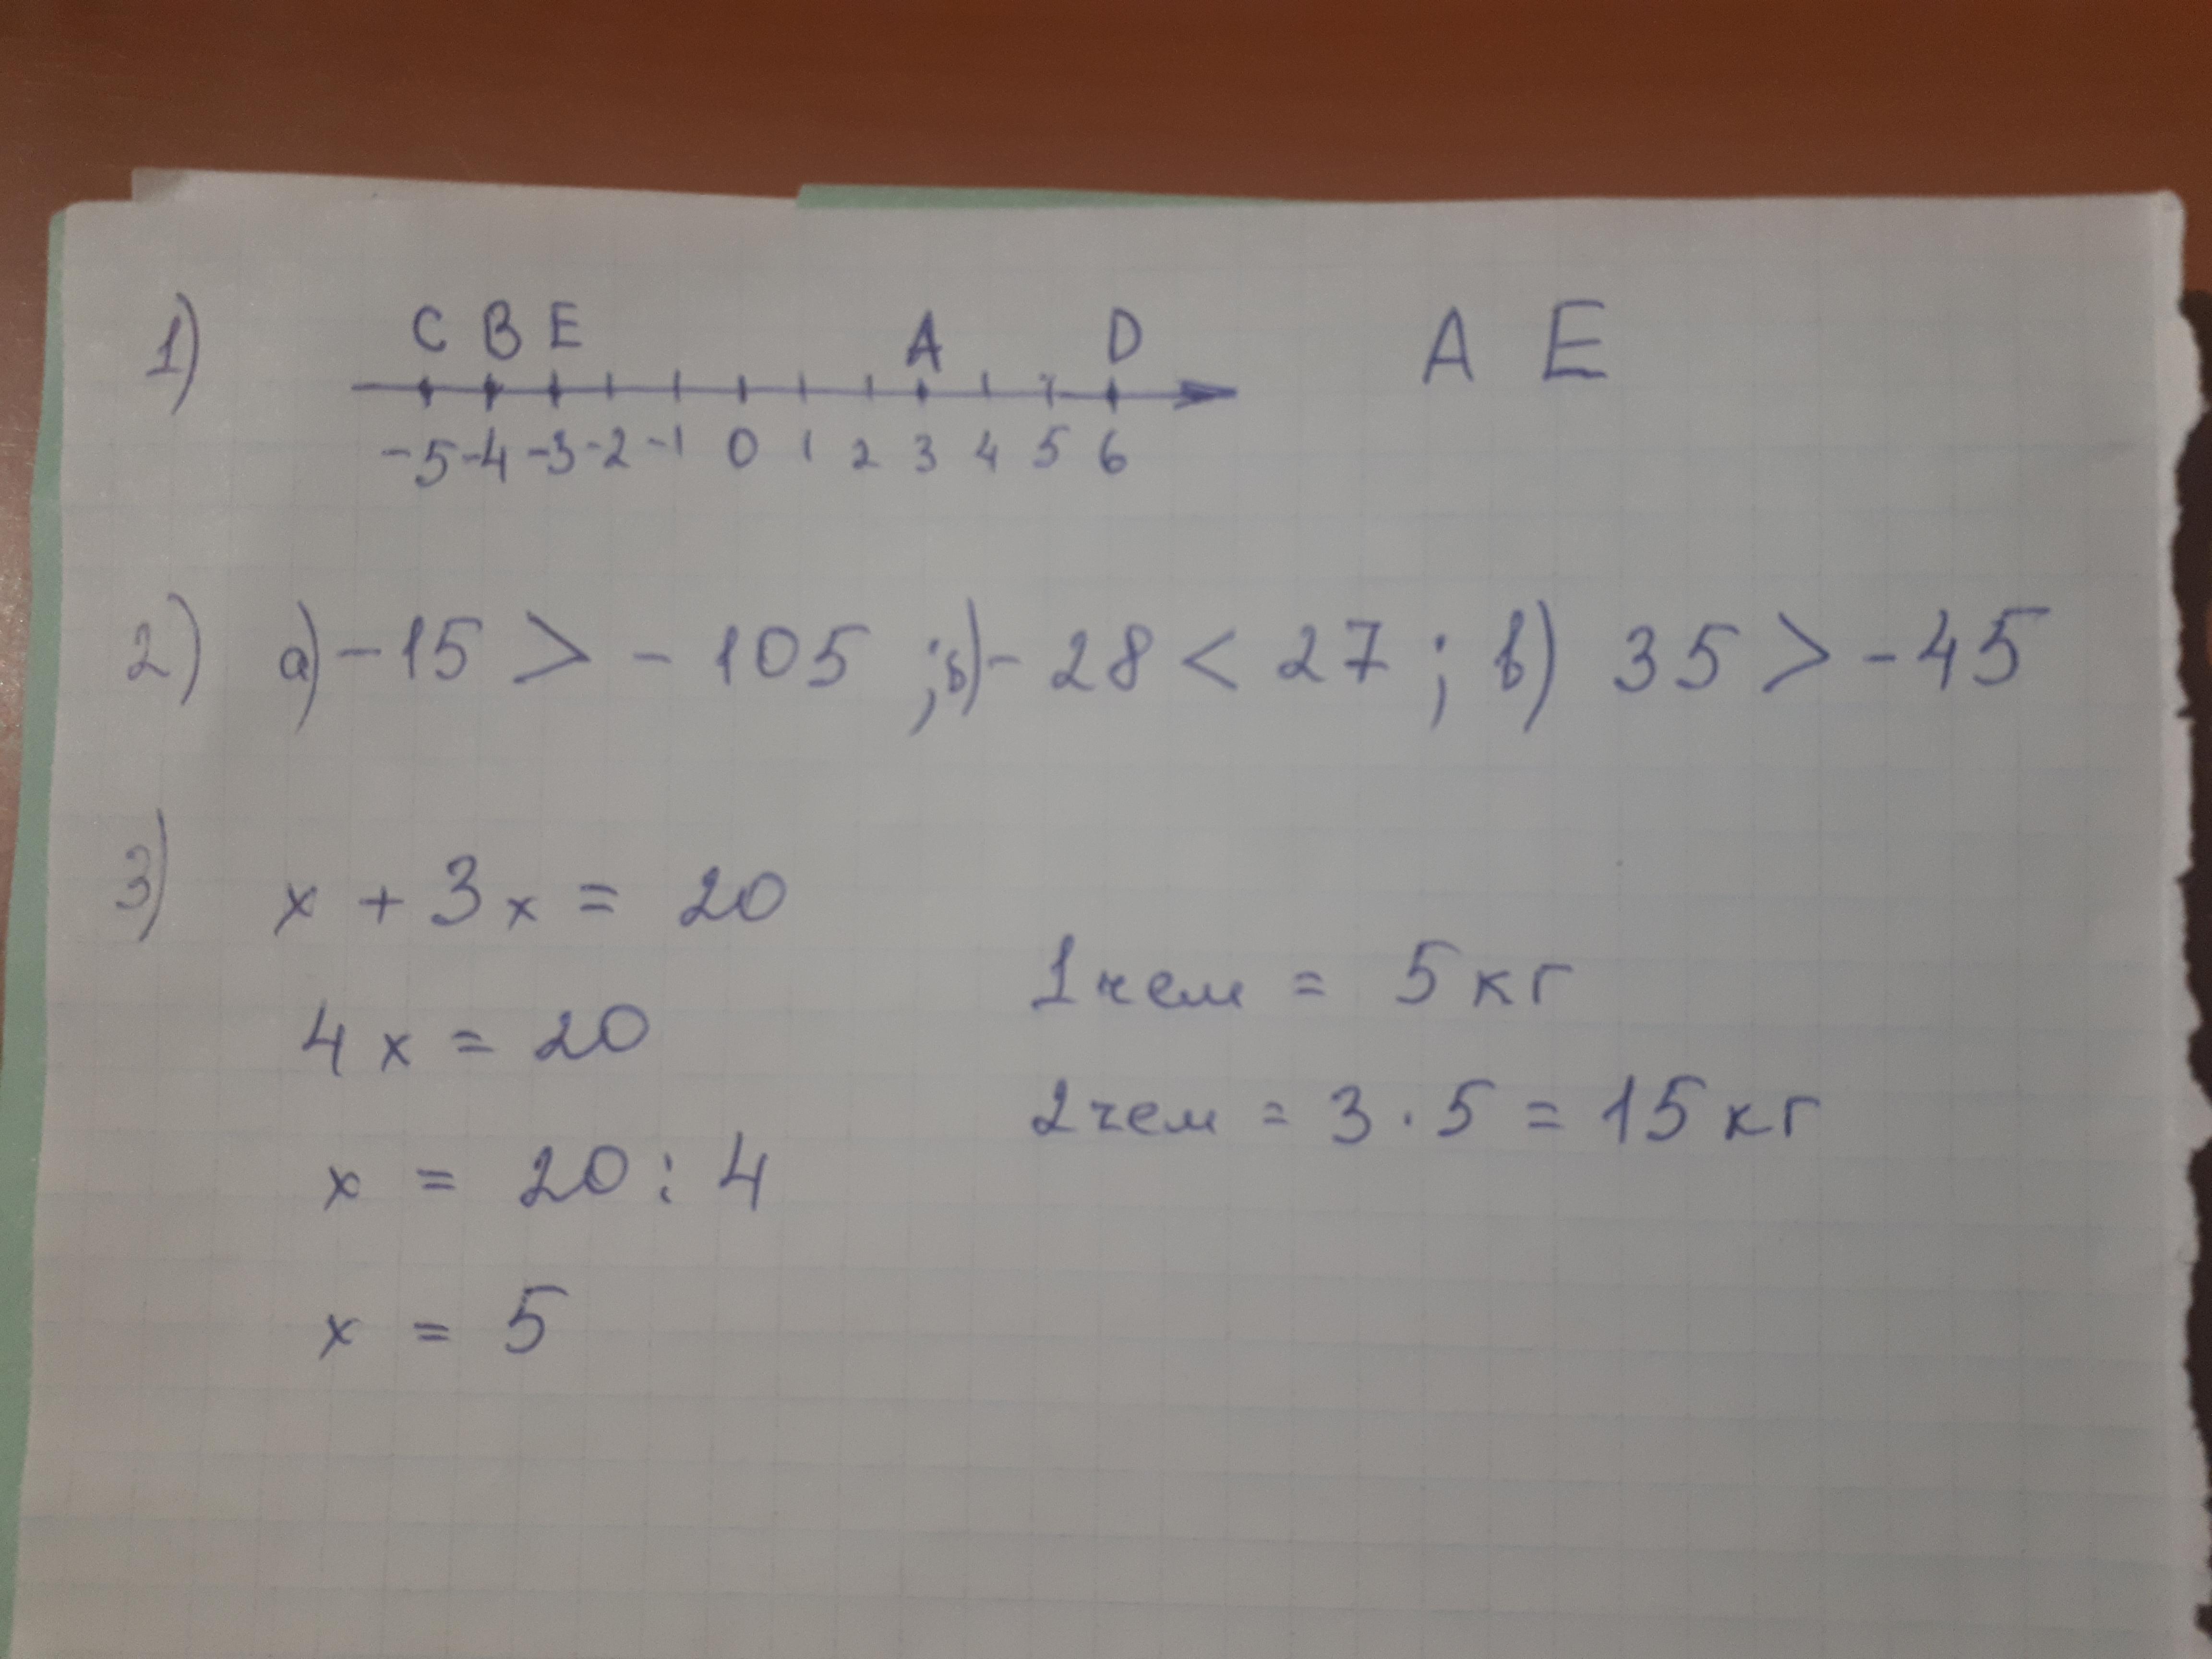 1) C B E A D A E
-5 -4 -3 -2 -1 0 1 2 3 4 5 6
2) а) -15 > -105 ; б) -28 < 27 ; в) 35 > -45
3) x + 3x = 20
1 чем = 5 кг
4x = 20
2 чем = 3 · 5 = 15 кг
x = 20 : 4
x = 5